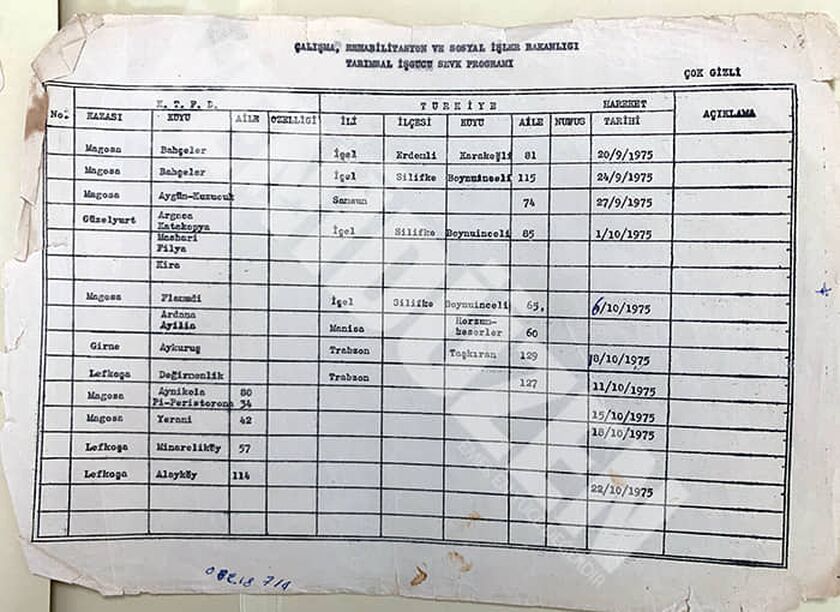 ÇALIŞMA, REHABİLİTASYON VE SOSYAL İŞLER BAKANLIGI
TARIMSAL İŞGÜCÜ SEVK PROGRAMI
ÇOK GİZLİ
K. T. F. D. TÜRKİYE HAREKET
No: KAZASI KUYU AİLE OZELLİGİ İLİ İLÇESİ KUYU AİLE NUFUS TARİHİ AÇIKLAMA
Magosa Bahçeler İçel Erdemli Karakeğli 81 20/9/1975
Magosa Bahçeler İçel Silifke Boynuinceli 115 24/9/1975
Magosa Aygün-Kuzucuk Samsun 74 27/9/1975
Güzelyurt Argaca
Katakopya İçel Silifke Boynuinceli 85 1/10/1975
Mashari
Filya
Kira
Magosa Flamudi İçel Silifke Boynuinceli 65, 6/10/1975
Ardana
Ayilia Manisa Horzum-
beserler 60
Girne Aykuruş Trabzon Taşkıran 129 8/10/1975
Lefkoşa Değirmenlik Trabzon 127 11/10/1975
Magosa Aynikola 80
Pi-Peristorona 34 15/10/1975
Magosa Yerani 42 18/10/1975
Lefkoşa Minareliköy 57
Lefkoşa Alayköy 114 22/10/1975